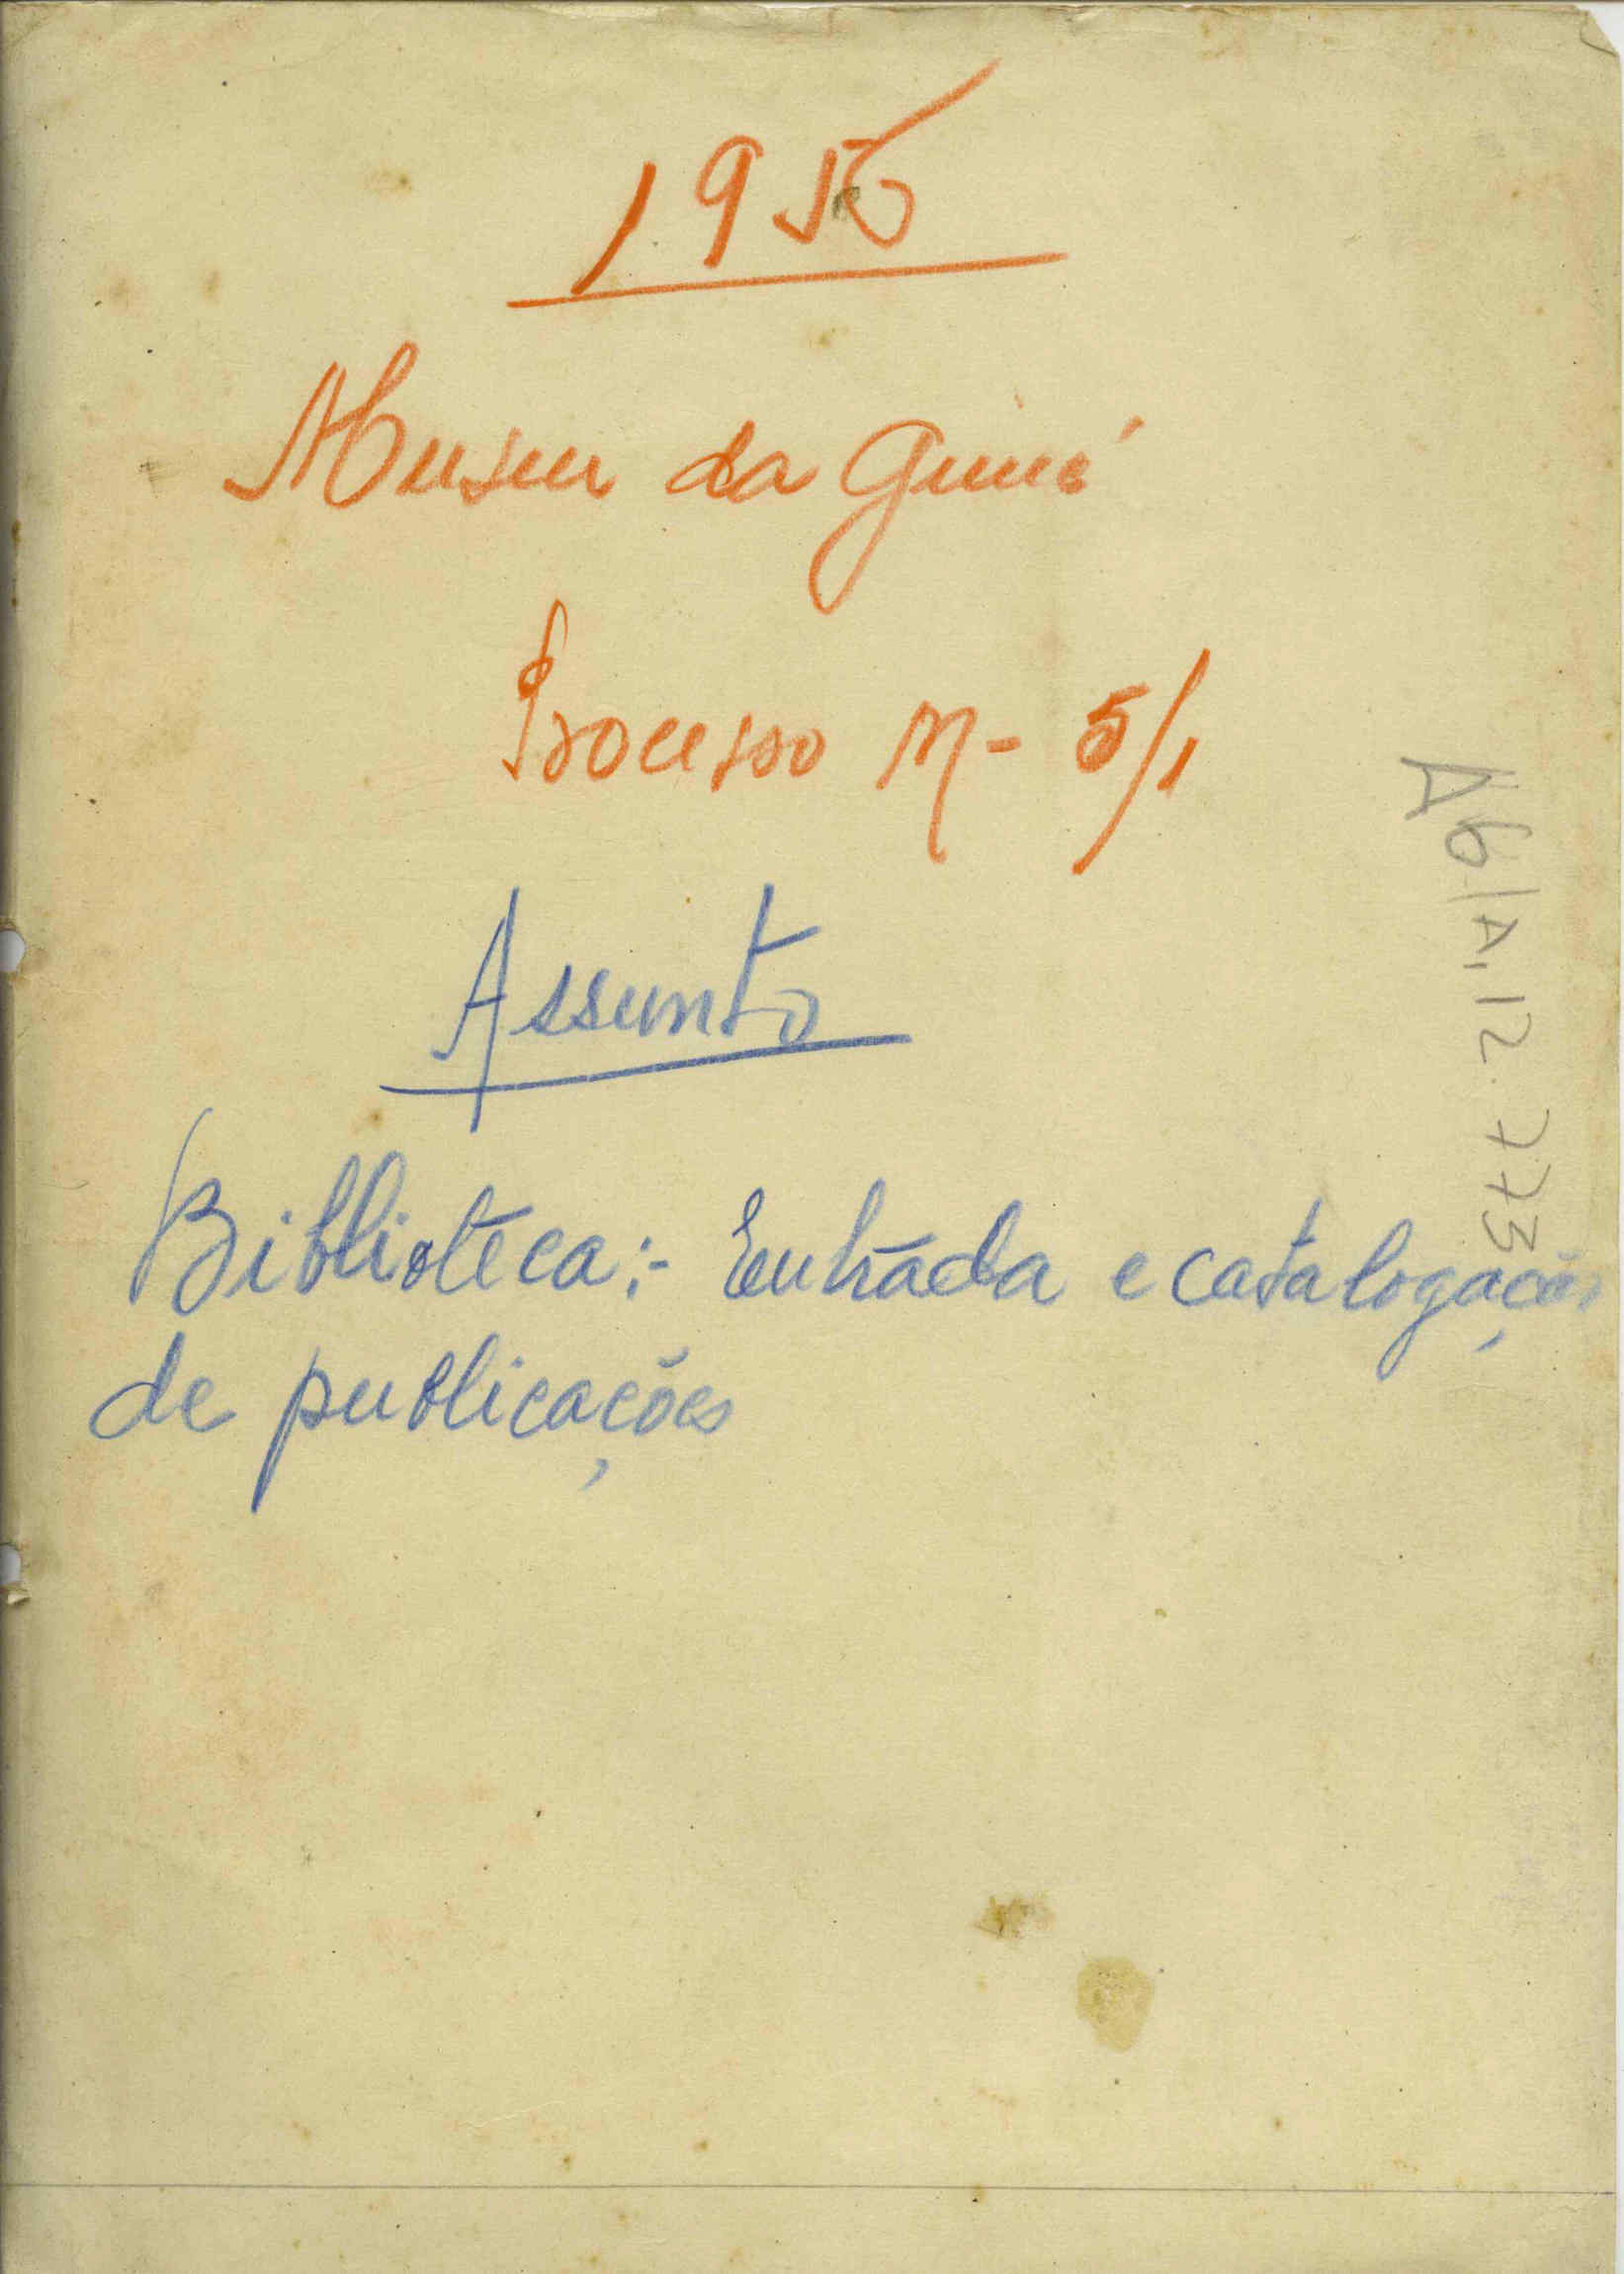 1956
Museu da Guiné
Processo M- 5/1
Assunto
Biblioteca:- Entrada e catalogação
de publicações
A6/A,12.773